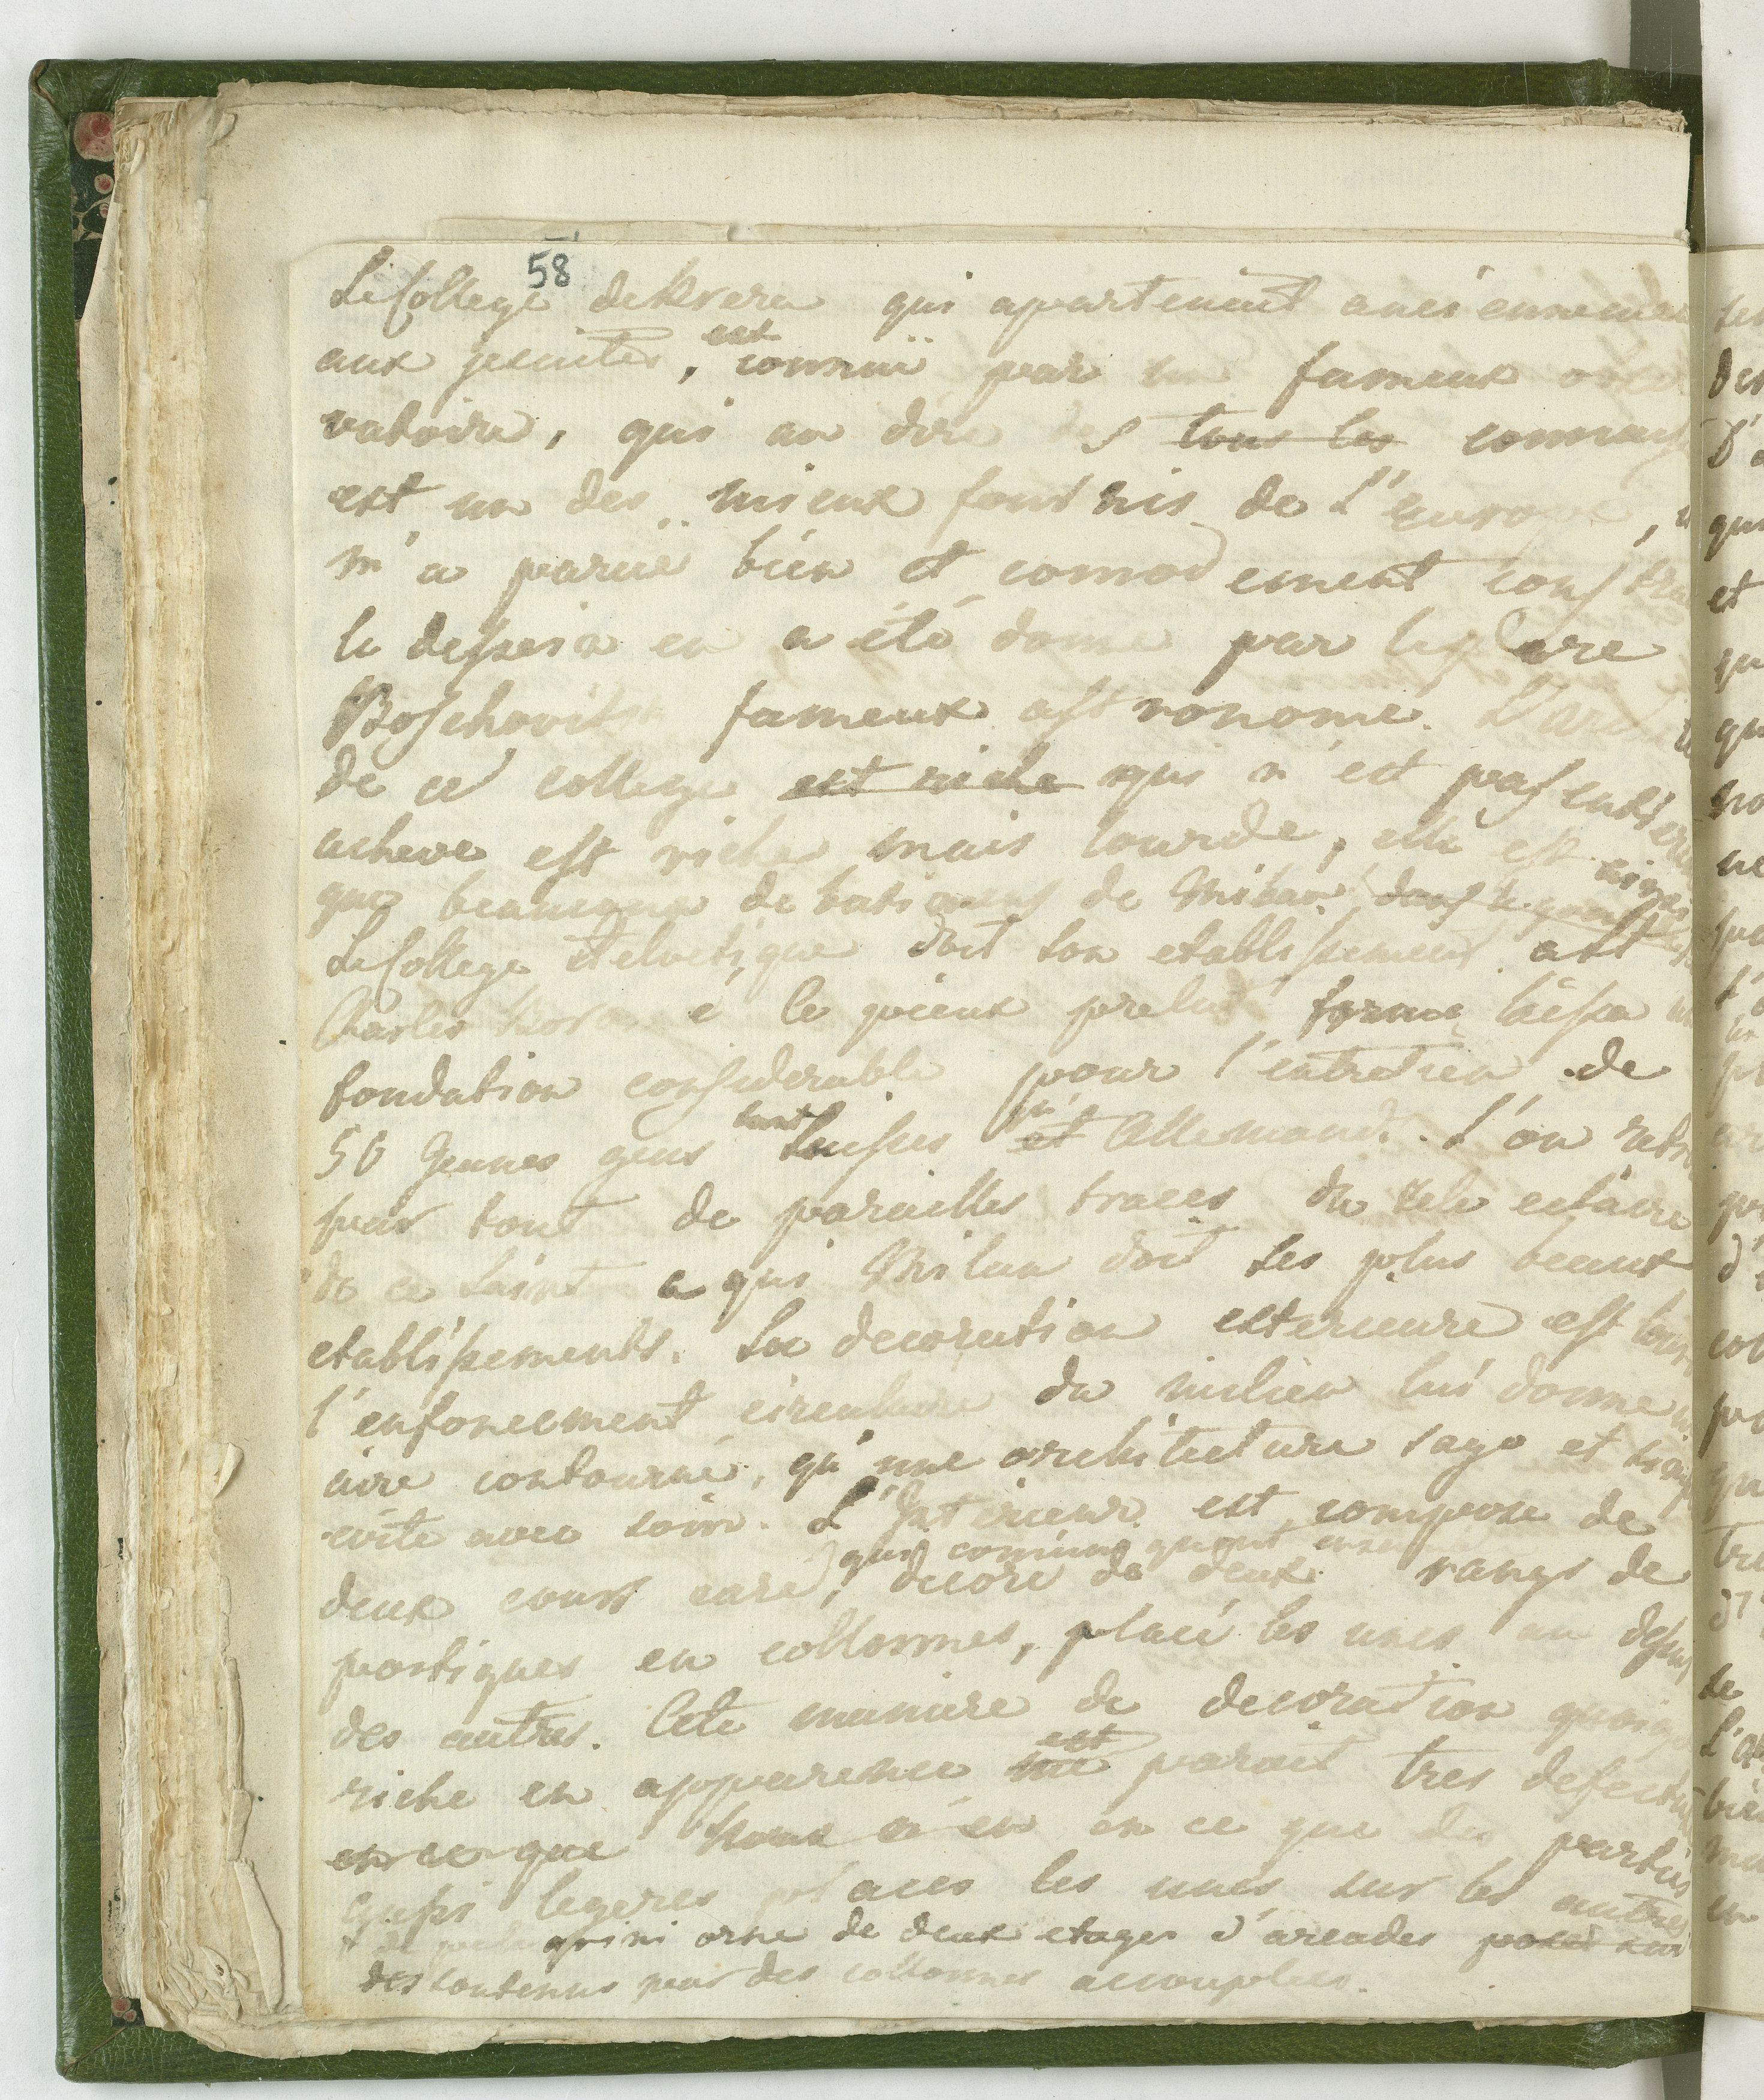 58
Le College de Brera qui apartenait anciennement
aux jesuites, est connuë par un fameux obser
vatoire, qui au dire des tous les connois
est un des mieux fournis de l'Europe,
m'a paruë bien et comodement constru
le dessein en a été donné par le pere
Boschovits fameux astronome. L'arc
de ce college est riche qui n'est pas entiere
acheve est riche mais lourde, elle est ainsi
que beaucoup de batiments de Milan dans le
Le College Helvetique doit son etablissement a St
Charles Borromé le pieux prelat forma laissa un
fondation considerable pour l'entretien de
50 Jeunes gens tant Suisses qu' et Allemands. L'on retro
par tout de pareilles traces du zele eclaire
de ce Saint a qui Milan doit ses plus beaux
etablissements. La decoration exterieure est lour
l'enfoncement circulaire du milieu lui donne un
aire contourné, qu'une architecture sage et simp
evite avec soin. L'Interieur est composé de
deux cours caré, qui comuniquent ensem
decoré de deux rangs de
portiques en collonnes, placé les unes au dessus
des autres. Cete maniere de decoration quoiq
riche en apparence est me parait tres defectu
en ce que nous n'en en ce que des parties
aussi legeres placés les unes sur les autres
grini orné de deux etages d'arcades posés sur
des soutenus par des collonnes accouplées.